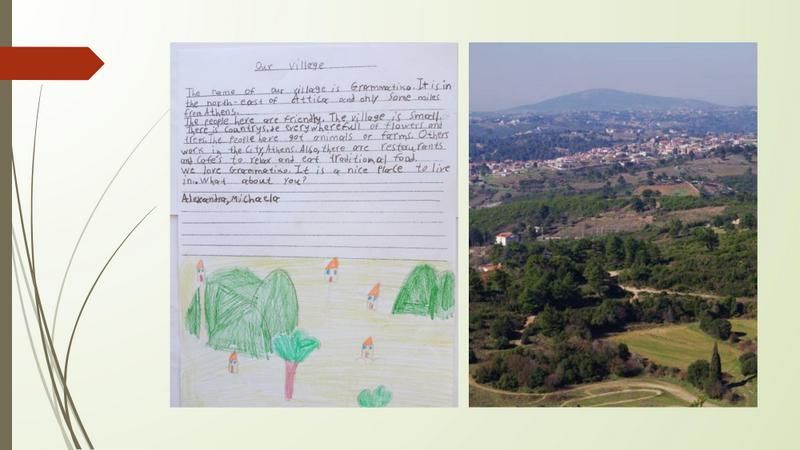 Our village
The name of our village is Grammatiko. It is in
the north-east of Attica and only some miles
from Athens.
The people here are friendly. The village is small.
There is countryside everywhere full of flowers and
trees. The people have got animals or farms. Others
work in the city, Athens. Also, there are restaurants
and cafe's to relax and eat traditional food.
We love Grammatiko. It is a nice place to live
in. What about you?
Alexandra, Michaela